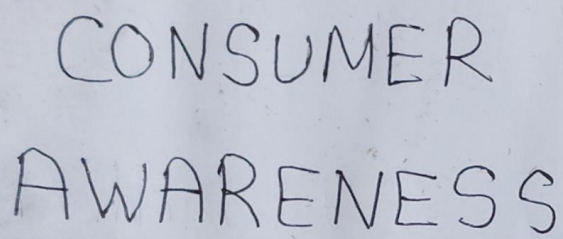 CONSUMER
AWARENESS